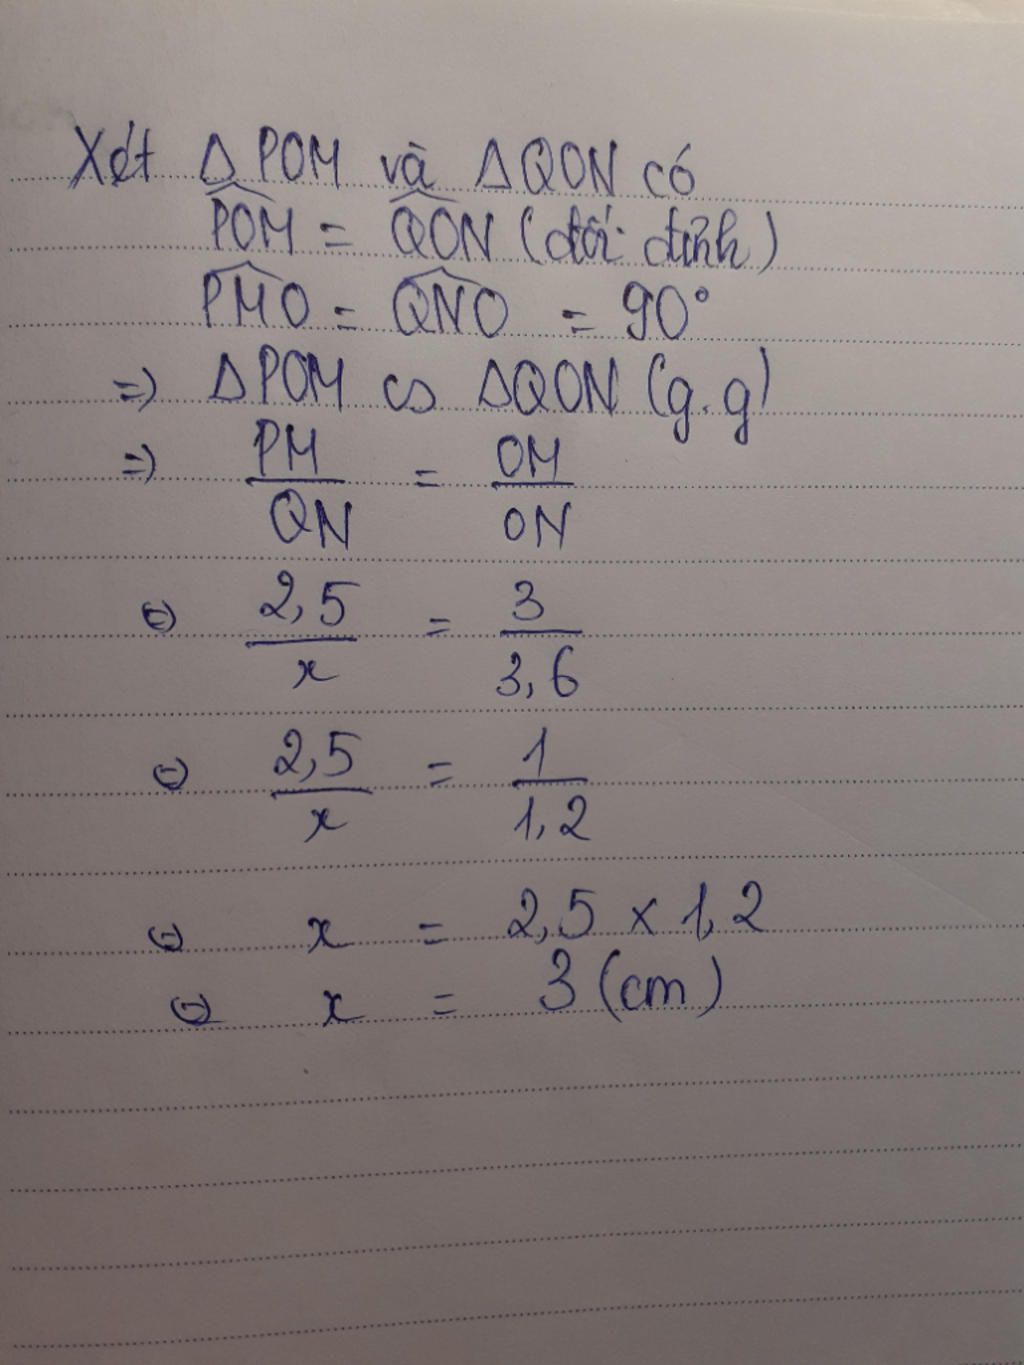 Xét Δ POM và Δ QON có
POM = QON (đối đỉnh)
PMO = QNO = 90°
=> Δ POM ∽ Δ QON (g.g)
=> PM/QN = OM/ON
⇔ 2,5/x = 3/3,6
⇔ 2,5/x = 1/1,2
⇔ x = 2,5 × 1,2
⇔ x = 3 (cm)